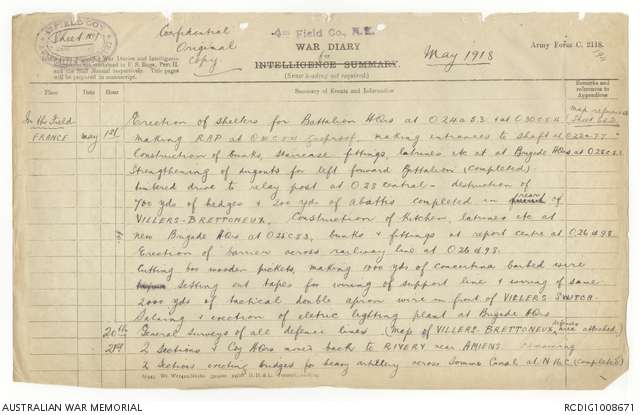 Confidential
Original
Copy.
4th Field Co., R.E.
Sheet No 1
WAR DIARY
or
INTELLIGENCE SUMMARY.
(Erase heading not required.)
May 1918
Army Form C. 2118.
War Diaries and Intelligence
contained in F. S. Regs., Part II.
and the Staff Manual respectively. Title pages
will be prepared in manuscript.
Place Date Hour Summary of Events and Information Remarks and references to Appendices
In the Field May 1st Erection of shelters for Battalion HQrs at O24a5.3 and map reference
FRANCE making RAP at gasproof, making entrances to shaft at
Construction of bunks, staircase fittings, latrines etc at Brigade HQrs at
Strengthening of dugouts for left forward Battalion (completed)
timbered drive to relay post at O28 central - destruction of
700 yds of hedges & 200 yds of abattis completed in rear of
VILLERS-BRETTONEUX. Construction of Kitchen, latrines etc at
new Brigade HQrs at bunks & fittings at report centre at O26d9.8.
Erection of barrier across railway line at O26d9.8.
Cutting 600 wooden pickets, making 1000 yds of concertina barbed wire
Setting out tapes for wiring of support line & wiring of same
2000 yds of tactical double apron wire in front of VILLERS SWITCH.
& erection of eletric lighting plant at Brigade HQrs
20th General surveys of all defence lines (Map of VILLERS-BRETTONEUX defences area attached.)
21st 2 Sections & Coy HQrs moved back to RIVERY near AMIENS. remaining
2 Sections erecting bridges for heavy artillery across Somme Canal at (Completed)
AUSTRALIAN WAR MEMORIAL
RCDIG1008671